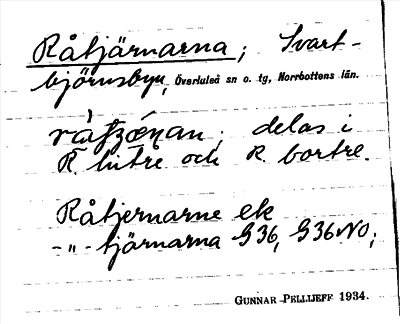 Råtjärnarna; Svart-
björnsbyn, Överluleå sn o. tg, Norrbottens län.
delas i
R. hitre och R. bortre.
Råtjernarne ek
-"- tjärnarna G36, G36NO;
GUNNAR PELLIJEFF 1934.